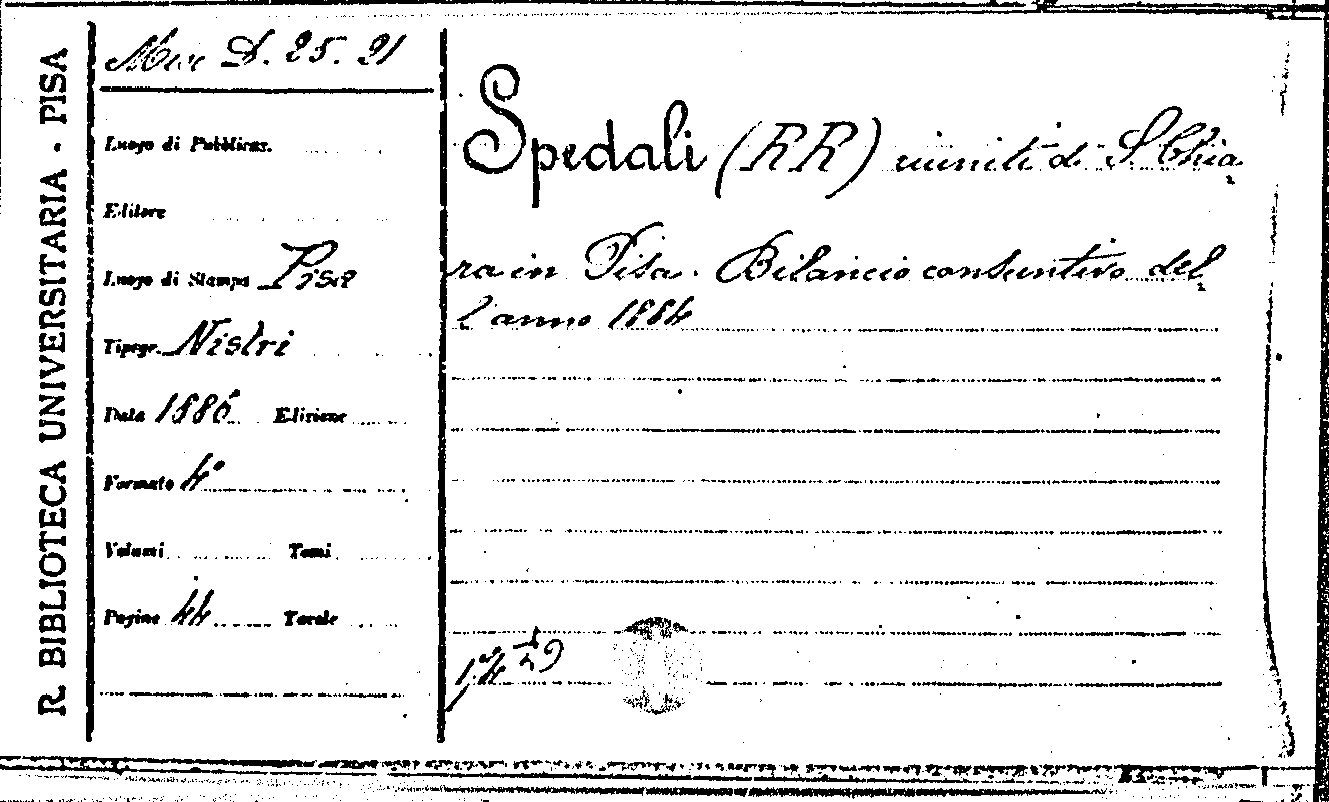 R. BIBLIOTECA UNIVERSITARIA - PISA
Misc D. 25. 21
Luogo di Pubblicaz.
Editore
Luogo di Stampa Pisa
Tipogr. Nistri
Data 1886 Edizione
Formato 4°
Volumi Tomi
Pagine 44 Tavole
Spedali (RR) riuniti di S. Chia
ra in Pisa. Bilancio consuntivo del
l'anno 1884